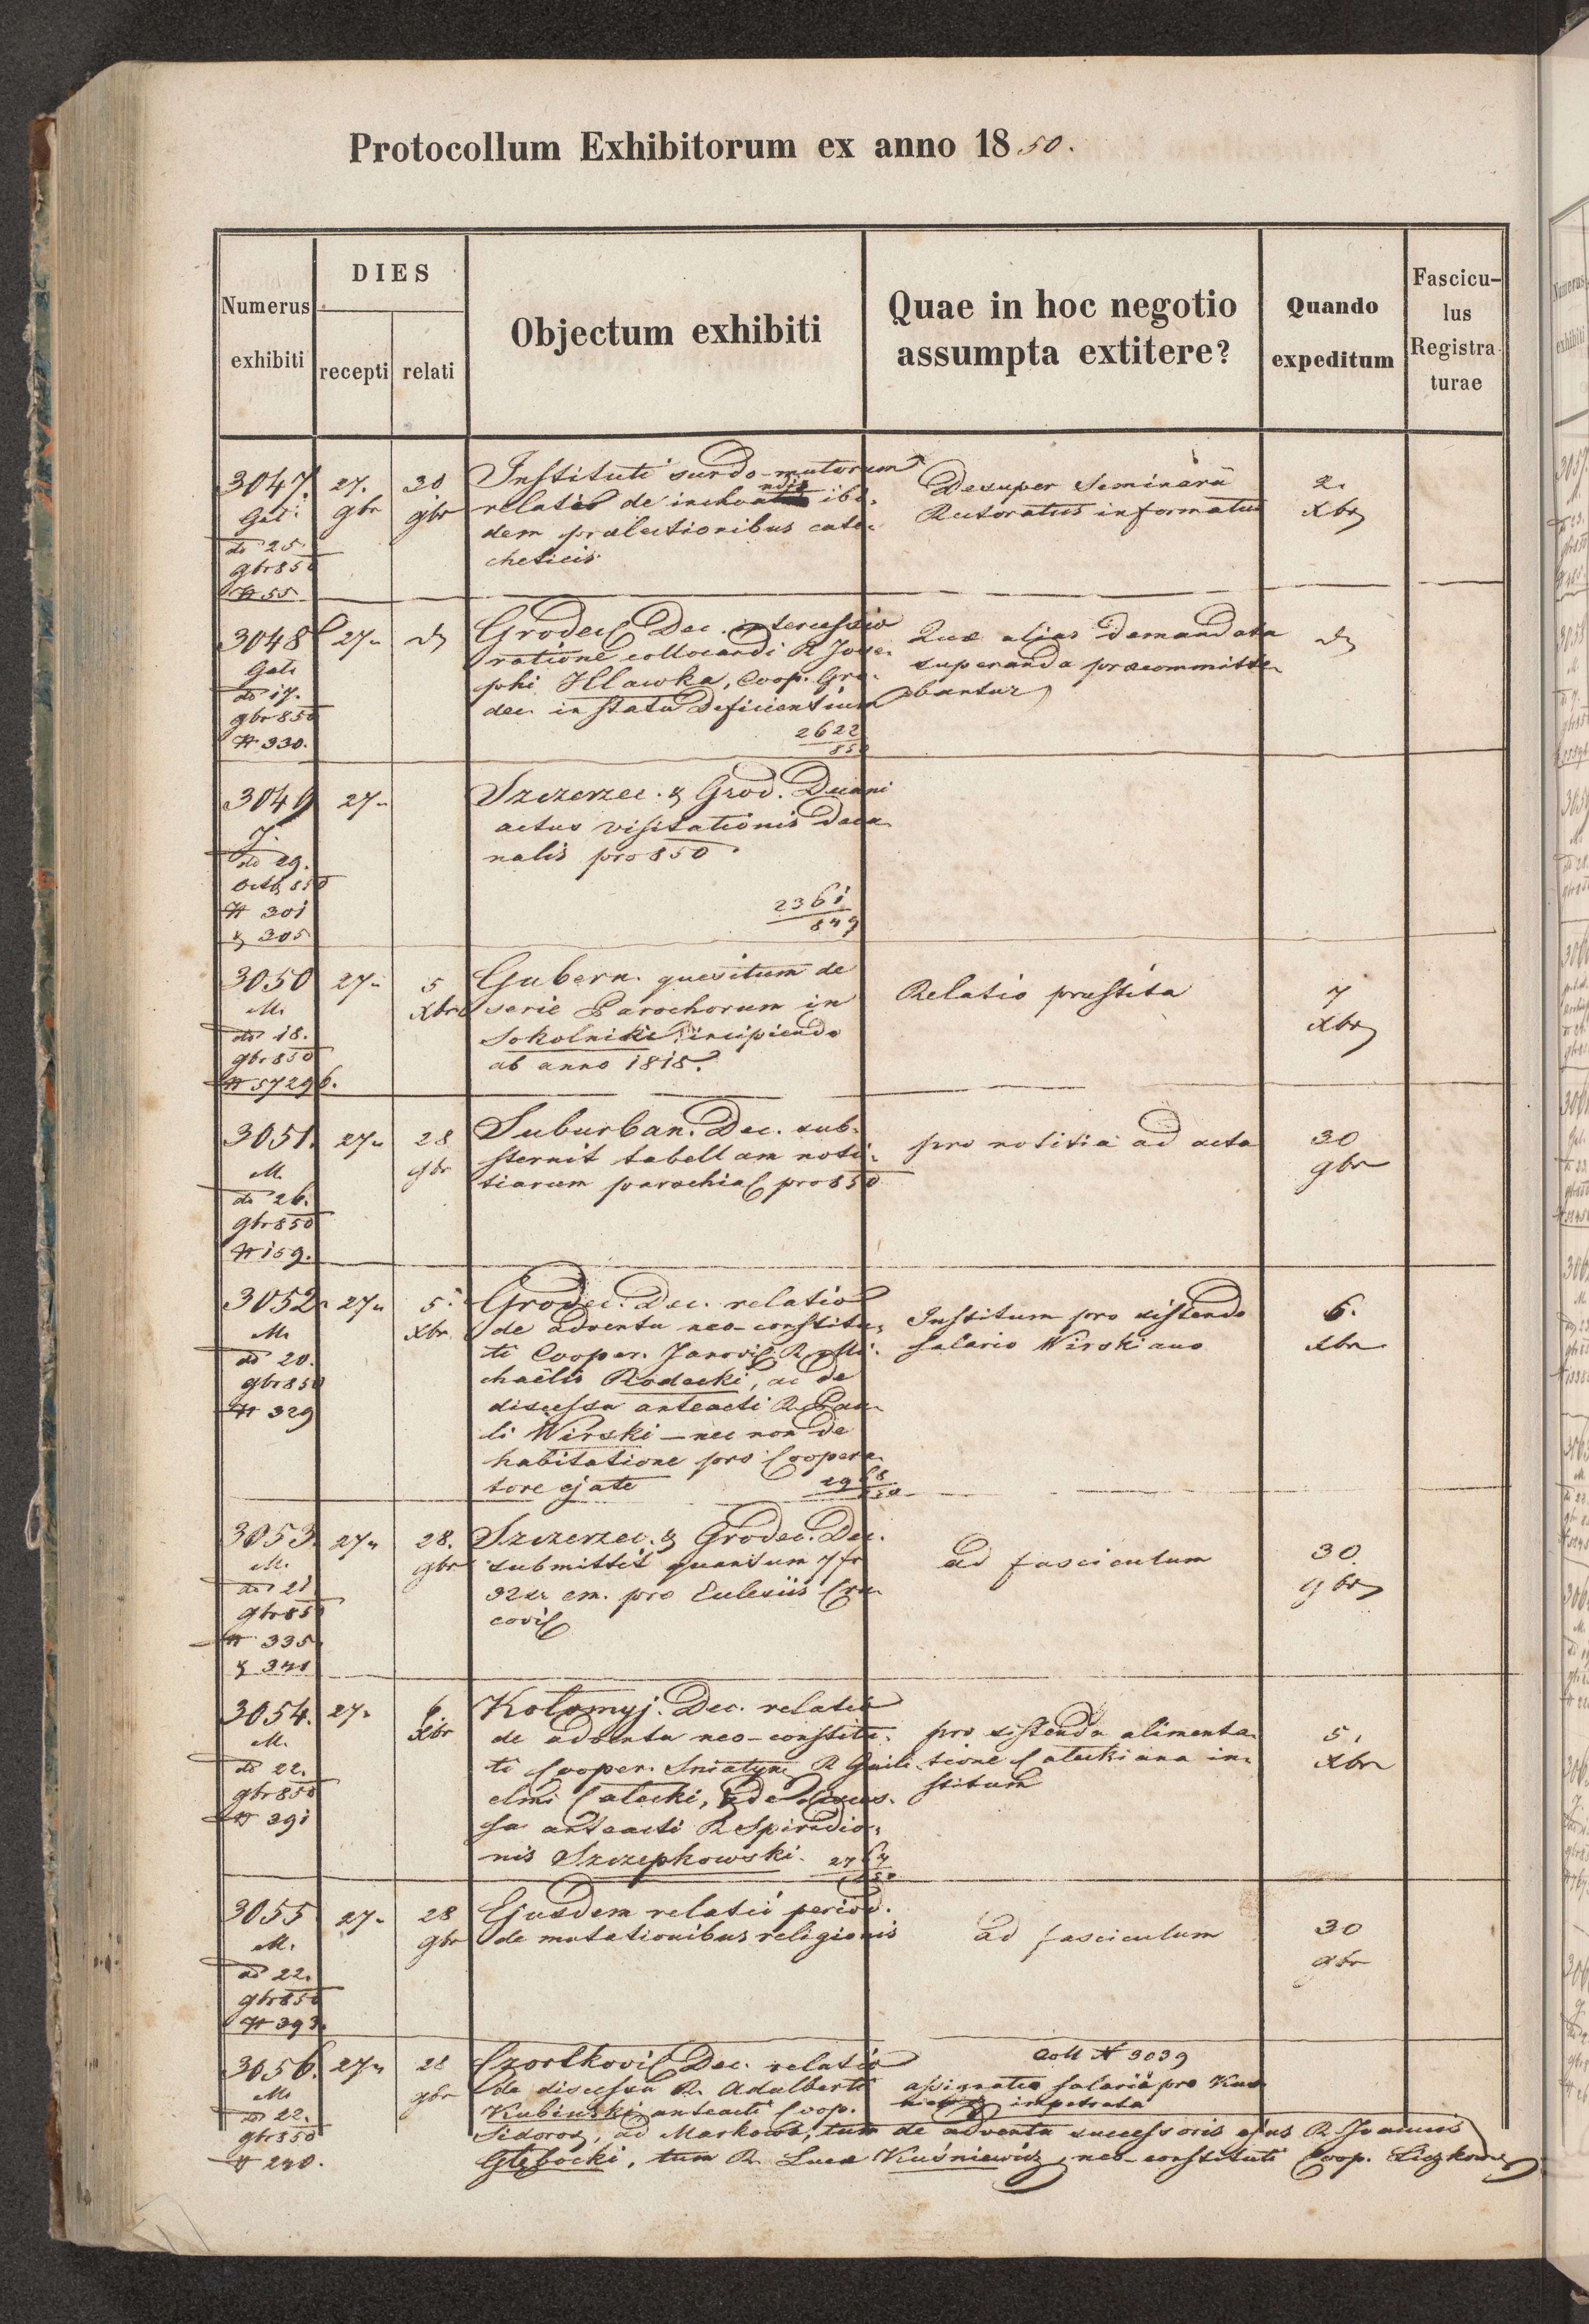 Protocollum Exhibitorum ex anno 1850.
Numerus
exhibiti
DIES
recepti
relati
Objectum exhibiti
Quae in hoc negotio
assumpta extitere?
Quando
expeditum
Fascicu-
lus
Registra-
turae
3047.
dto 25.
gbr 850
N 55
27.
gbr
30
gbr
Instituti surdo-mutorum
relatio de inchoandis ibi-
dem prælectionibus cate-
cheticis
Desuper Seminarii
Rectoratus informatus
2.
Xbr
3048
dto 17.
gbr 850
N 330.
27
Grodec Dec. intercessio
ratione collocandi R Jose-
phi Hlawka, Coop. Gro-
dec. in statu Deficientium
2622
850
Quæ alias demandata
superanda præcommitte-
bantur
3049
J.
dto 29.
Octb 850
N 301
& 305
27
Szczerzec. & Grod. Decani
actus visitationis deca-
nalis pro 850
2361
849
3050
M.
dto 18.
gbr 850
N 57296.
27
5
Xbr
Gubern. quesitum de
serie Parochorum in
Sokolniki incipiendo
ab anno 1815.
Relatio præstita
7
Xbr
3051.
M.
dto 26.
gbr 850
N 159.
27
28
gbr
Suburban. Dec. sub-
sternit tabellam noti-
tiarum parochial pro 850
pro notitia ad acta
30
gbr
3052
M.
dto 20.
gbr 850
N 329
27
5
Xbr
Grodec. Dec. relatio
de adventu neo-constitu-
ti Cooper. Janovi R Mi-
chaëlis Rodecki, ac de
discessu anteacti R Pau-
li Wirski - nec non de
habitatione pro Coopera-
tore ejate
Institum pro sistendo
salario Wirskiano
6.
Xbr
3053.
M.
dto 21
gbr 850
N 335
& 341
27
28.
gbr
Szczerzec. & Grodec. Dec.
submittit quantum 7 fr
32 xr cm. pro Eclesiis Cra-
covi
ad fasciculum
30
gbr
3054.
M.
dto 22.
gbr 850
N 391
27
6
Xbr
Kołomyj. Dec. relatio
de adventu neo-constitu-
ti Cooper. Sniatyn R Guili-
elmi Catecki, & de disces-
su anteacti R Spiridio-
nis Szczepkowski.
pro sistenda alimenta-
tione Cateckiana in-
stitum
5.
Xbr
3055
M.
dto 22.
gbr 850
N 393.
27
28
gbr
Ejusdem relatio period.
de mutationibus religionis
ad fasciculum
30
gbr
3056.
M.
dto 22.
gbr 850
N 240.
27
28
gbr
Czortkovi Dec. relatio
de discessu R. Adalberti
Kubiński anteacti Coop.
Coll N 3039
assignatio salarii pro Kus-
impetrata
Sidorov, ad Markowa, tum de adventu successoris ejus R Joannis
Głębocki, tum R. Lucæ Kuśniewicz, neo-constituti Coop. Liczkow